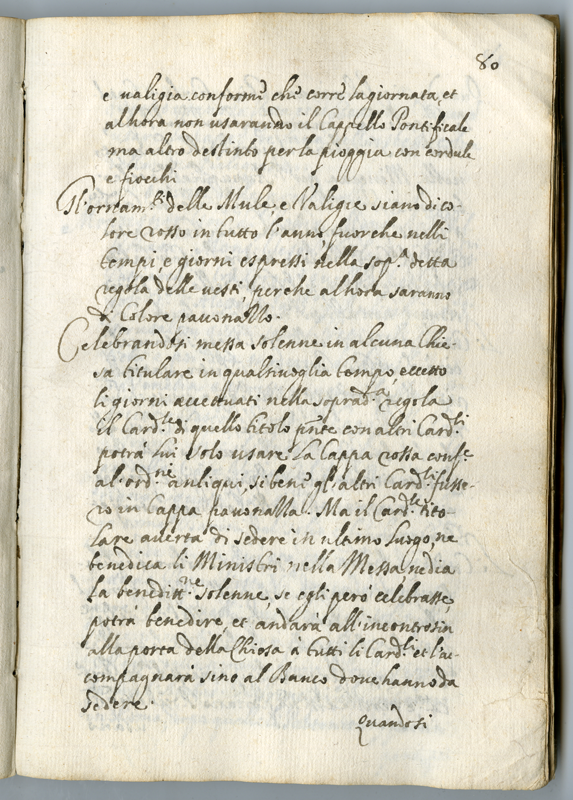 80
e valigia conforme che corre la giornata, et
alhora non usaranno il Cappello Pontificale
ma altro destinto per la pioggia con cordule
e fiocchi
Gl'ornam.ti delle Mule, e Valigie siano di co-
lore rosso in tutto l'anno, fuorche nelli
tempi, e giorni espressi nella sop.a detta
regola delle vesti, perche alhora saranno
di Colore pavonallo.
Celebrandosi messa solenne in alcuna Chie-
sa titulare in qualsivoglia tempo, eccetto
li giorni accettuati nella soprad.a regola
il Card.le di quello titolo pnte con altri Card.li
potrá lui solo usare la Cappa rossa conf.e
al'ord.ne antiqui, si bene gl'altri Card.li fusse-
ro in Cappa pavonalla. Ma il Card.le tito-
lare averta di sedere in ultimo luogo, ne
benedica li Ministri nella Messa, ne dia
la beneditt.ne solenne, se egli peró celebrasse,
potrá benedire, et andará all'incontro sin
alla porta della Chiesa á tutti li Card.li et l'ac-
compagnará sino al Banco dove hanno da
sedere.
Quando si